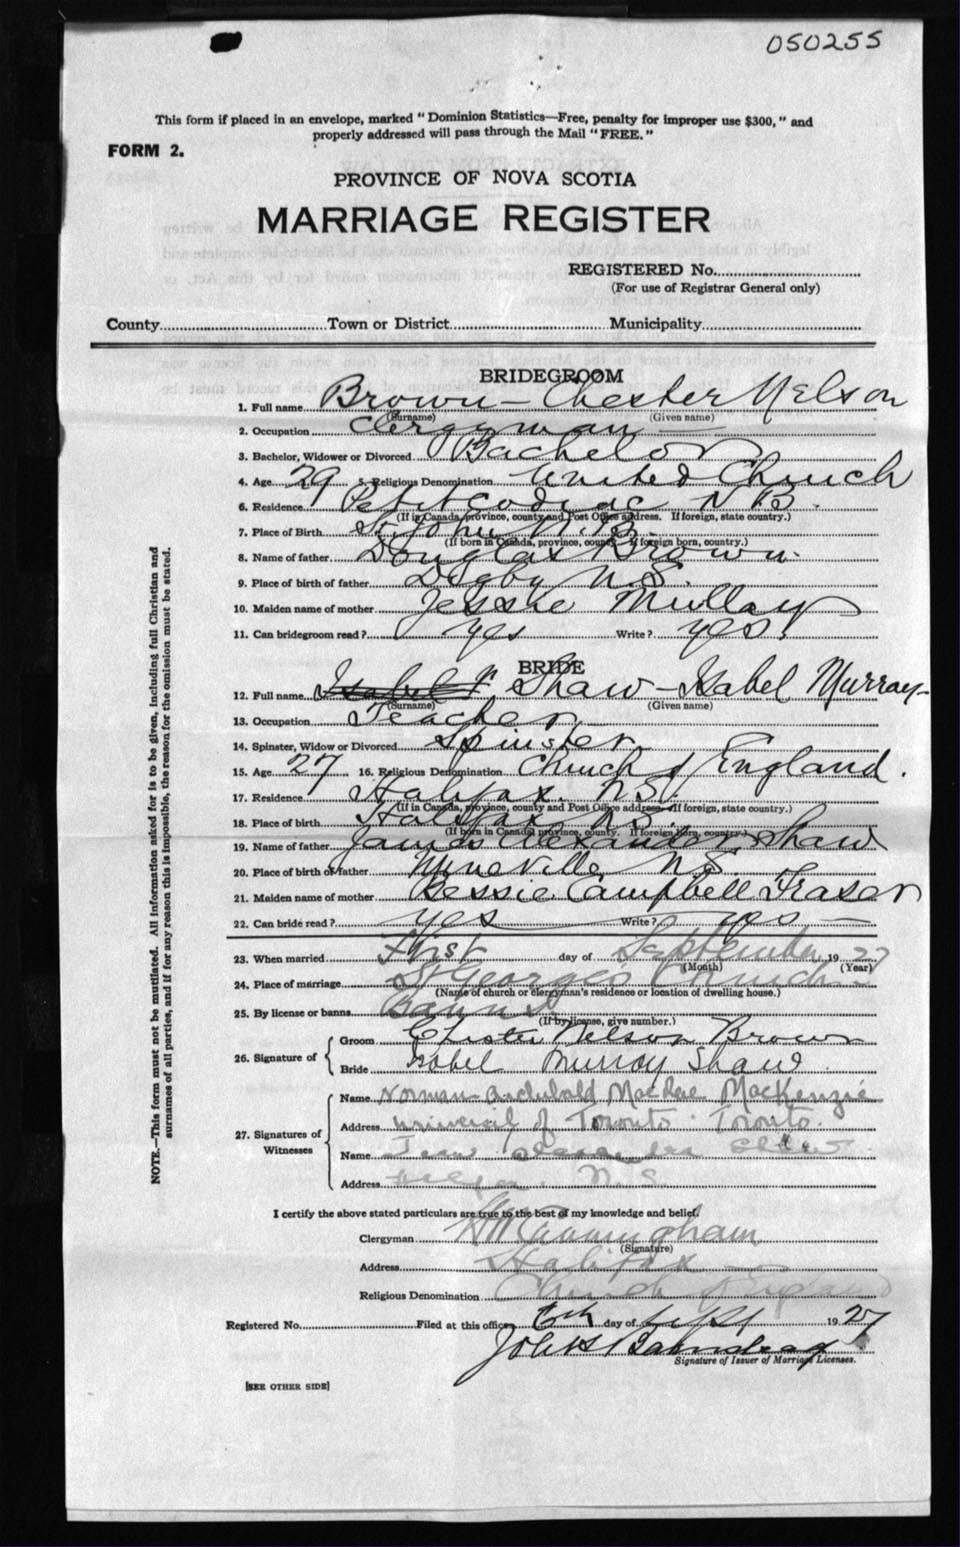 050255
This form if placed in an envelope, marked "Dominion Statistics—Free, penalty for improper use $300," and
properly addressed will pass through the Mail "FREE."
FORM 2.
PROVINCE OF NOVA SCOTIA
MARRIAGE REGISTER
REGISTERED No.
(For use of Registrar General only)
County Town or District Municipality
BRIDEGROOM
1. Full name Brown — Chester Nelson
(Surname) (Given name)
2. Occupation Clergyman
3. Bachelor, Widower or Divorced Bachelor
4. Age 29 5. Religious Denomination United Church
6. Residence Petitcodiac N B.
(If in Canada, province, county and Post Office address. If foreign, state country.)
7. Place of Birth St. John N.B.
(If born in Canada, province, county. If foreign born, country.)
8. Name of father Douglas Brown.
9. Place of birth of father Digby N.S.
10. Maiden name of mother Jessie Mullay
11. Can bridegroom read? yes Write? yes.
BRIDE
12. Full name Isabel Shaw — Isabel Murray
(Surname) (Given name)
13. Occupation Teacher
14. Spinster, Widow or Divorced Spinster
15. Age 27 16. Religious Denomination Church of England.
17. Residence Halifax. N.S.
(If in Canada, province, county and Post Office address. If foreign, state country.)
18. Place of birth Halifax N.S.
(If born in Canada, province, county. If foreign born, country.)
19. Name of father James Alexander Shaw
20. Place of birth of father Mineville N.S.
21. Maiden name of mother Bessie Campbell Fraser
22. Can bride read? yes Write? yes
23. When married First day of September 19 27
(Month) (Year)
24. Place of marriage St Georges Church
(Name of church or clergyman's residence or location of dwelling house.)
25. By license or banns Banns
(If by license, give number.)
26. Signature of
Groom Chester Nelson Brown
Bride Isabel Murray Shaw
27. Signatures of Witnesses
Name Norman Archibald MacRae MacKenzie
Address University of Toronto Toronto.
Name Alexander Shaw
Address Halifax. N.S.
I certify the above stated particulars are true to the best of my knowledge and belief.
Clergyman Cunningham
(Signature)
Address Halifax
Religious Denomination Church of England
Registered No. Filed at this office 6th day of Sept 19 27
Signature of Issuer of Marriage Licenses.
[SEE OTHER SIDE]
NOTE.—This form must not be mutilated. All information asked for is to be given, including full Christian and
surnames of all parties, and if for any reason this is impossible, the reason for the omission must be stated.